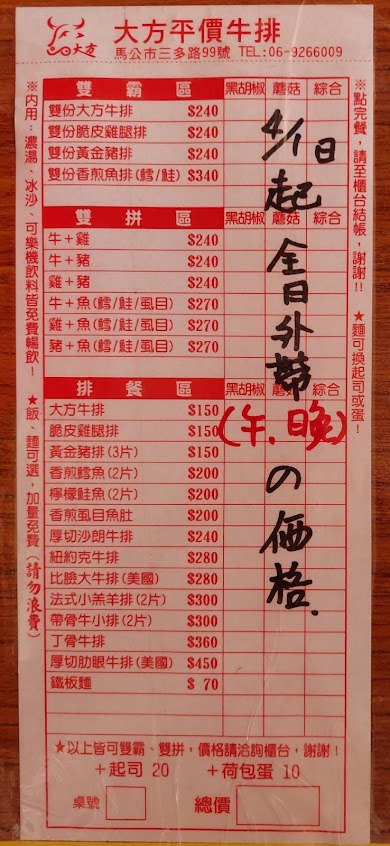 大方
大方平價牛排
馬公市三多路99號 TEL:06-9266009
雙霸區 黑胡椒 蘑菇 綜合
雙份大方牛排 $240
雙份脆皮雞腿排 $240
雙份黃金豬排 $240
雙份香煎魚排(鱈/鮭) $340
雙拼區 黑胡椒 蘑菇 綜合
牛+雞 $240
牛+豬 $240
雞+豬 $240
牛+魚(鱈/鮭/虱目) $270
雞+魚(鱈/鮭/虱目) $270
豬+魚(鱈/鮭/虱目) $270
排餐區 黑胡椒 蘑菇 綜合
大方牛排 $150
脆皮雞腿排 $150
黃金豬排(3片) $150
香煎鱈魚(2片) $200
檸檬鮭魚(2片) $200
香煎虱目魚肚 $200
厚切沙朗牛排 $240
紐約克牛排 $280
比臉大牛排(美國) $280
法式小羔羊排(2片) $300
帶骨牛小排(2片) $300
丁骨牛排 $360
厚切肋眼牛排(美國) $450
鐵板麵 $ 70
★以上皆可雙霸、雙拼,價格請洽詢櫃台,謝謝!
+起司 20 +荷包蛋 10
桌號 總價
※內用:濃湯、冰沙、可樂機飲料皆免費暢飲! ★飯、麵可選,加量免費(請勿浪費)
※點完餐,請至櫃台結帳,謝謝!! ★麵可換起司或蛋!
4/1日起全日外帶
(午、晚)
の価格.